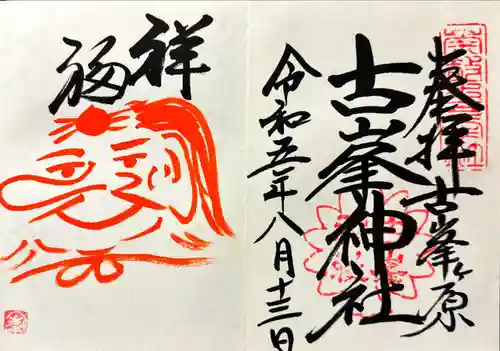 奉拝 古峯ヶ原
古峯神社
令和五年八月十三日
祥
福